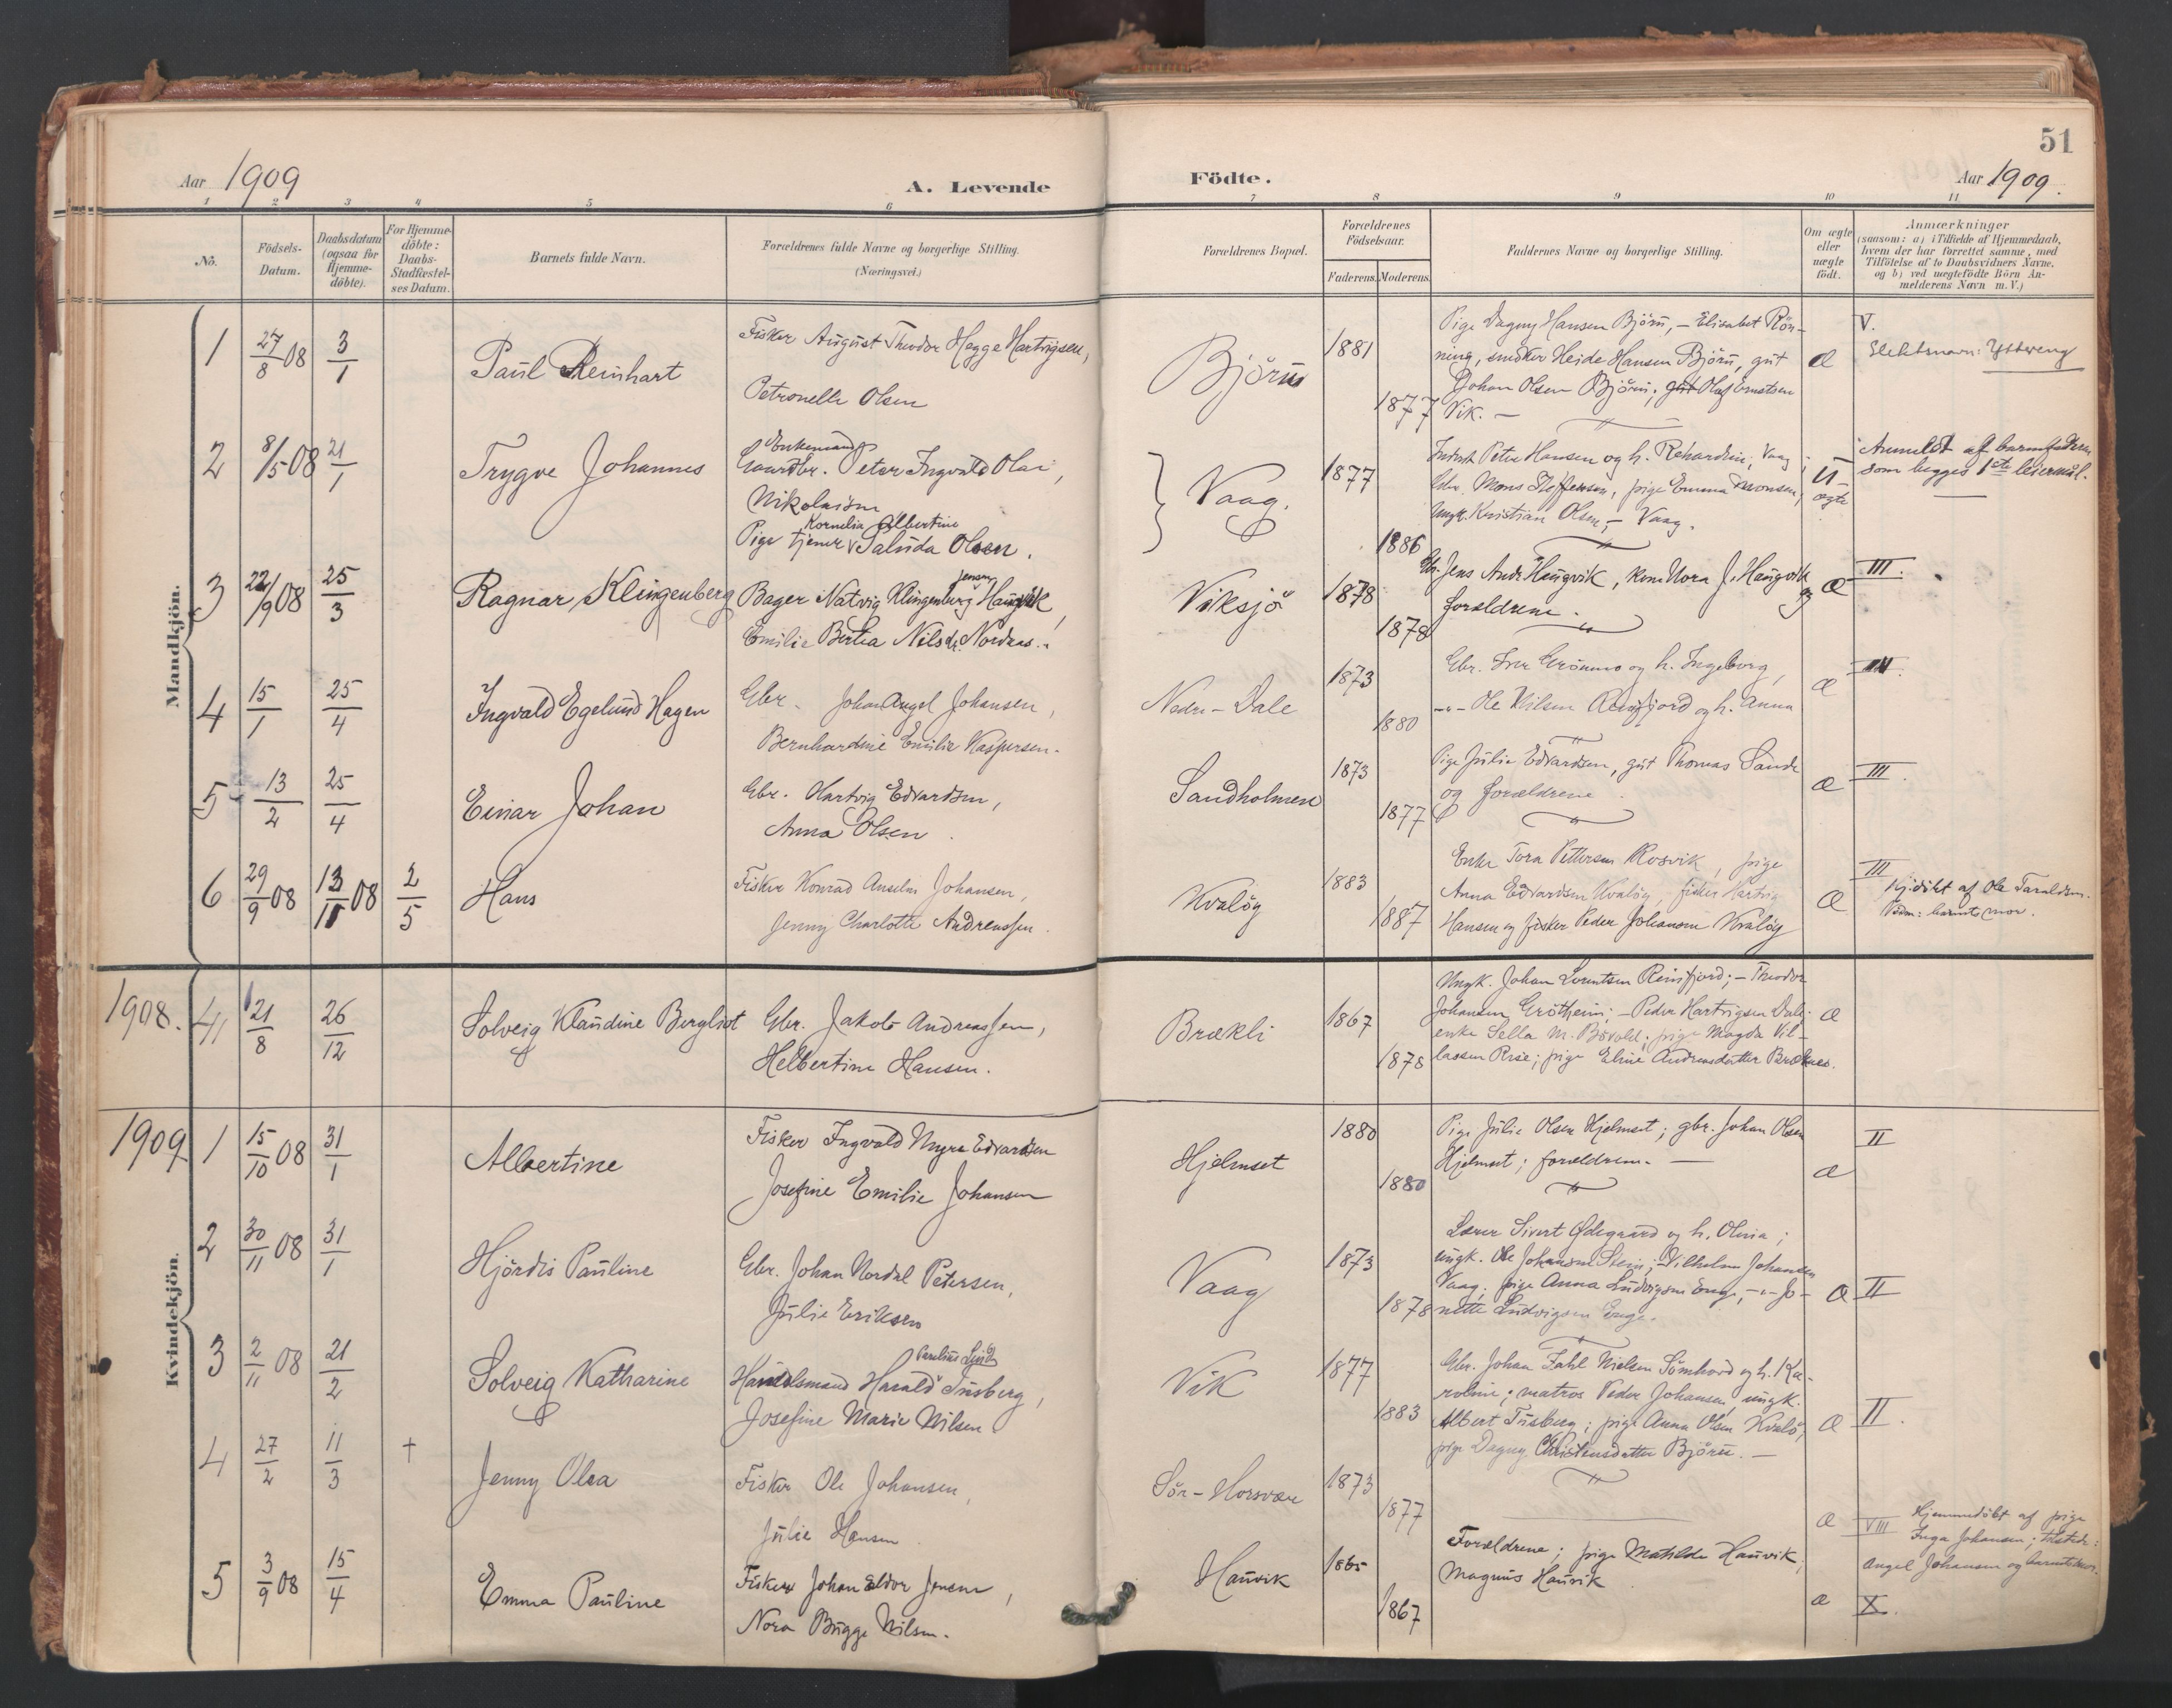 51
Aar 1909
A. Levende
Födte.
Aar 1909.
1 2 3 4 5 6 7 8 9 10 11
No.
Födsels-
Datum.
Daabsdatum
(ogsaa for
Hjemme-
döbte).
For Hjemme-
döbte:
Daabs-
Stadfæstel-
ses Datum.
Barnets fulde Navn.
Forældrenes fulde Navne og borgerlige Stilling.
(Næringsvei.)
Forældrenes Bopæl.
Forældrenes
Födselsaar.
Faderens. Moderens.
Faddernes Navne og borgerlige Stilling.
Om ægte
eller
uægte
födt.
Anmærkninger
(saasom: a) i Tilfælde af Hjemmedaab,
hvem der har forrettet samme, med
Tilföielse af to Daabsvidners Navne,
og b) ved uægtefödte Börn An-
melderens Navn m. V.)
Mandkjön.
1 27/8 08 3/1
Paul Reinhart
Fisker August Theodor Hegge Hartvigsen,
Petronelle Olsen
Björn
1881
1877
Pige Dagny Hansen Björn, – Elisabet Rön-
ning, snedker Heide Hansen Björn, gut
Johan Olsen Björn, gut Olaf Ernstsen
Vik. –
Æ
V.
Slektsnavn: Yttereng
2 8/5 08 21/1
Trygve Johannes
Enkemand
Gaardbr. Peter Ingvald Olai,
Nikolaisen
Kornelia Albertine
Pige tjener Salida Olsen.
Vaag.
1877
1886
Inderst Peter Hansen og h. Rehardine, Vaag;
Gbr. Mons Steffensen, pige Emma Monsen,
Ungk. Kristian Olsen, – Vaag.
U-
ægte
Anmeldt af barnefaderen
som begges 1ste leiermål.
3 22/9 08 25/3
Ragnar Klingenberg
Jensen
Bager Natvig Klingenberg Haugvik,
Emilie Bertea Nilsdr. Nordaas.
Viksjö
1878
1878
Gbr. Jens Andr. Haugvik, kone Nora J. Haugvik
og
forældrene.
Æ
III.
4 15/1 25/4
Ingvald Egelund Hagen
Gbr. Johan Angel Johansen,
Bernhardine Emilie Kaspersen.
Nedre-Dale
1873
1880
Gbr. Iver Grönmo og h. Ingeborg,
–"– Ole Nilsen Reinfjord og h. Anna
Æ
III.
5 13/2 25/4
Einar Johan
Gbr. Hartvig Edvardsen,
Anna Olsen.
Sandholmen
1873
1877
Pige Julie Edvardsen, gut Thomas Sande
og forældrene.
Æ
III.
6 29/9 08 13/11 08 2/5
Hans
Fisker Konrad Anselm Johansen,
Jenny Charlotte Andreassen.
Kvalöy
1883
1887
Enke Tora Pettersen Rosvik, pige
Anna Edvardsen Kvalöy, fisker Hartvig
Hansen og fisker Peder Johansen Kvalöy
Æ
III
Hjdöbt af Ole Taraldsen.
Vidn: barnets mor.
1908. 4 21/8 26/12
Solveig Klaudine Bergliot
Gbr. Jakob Andreassen,
Helbertine Hansen.
Brækli
1867
1878
Ungk. Johan Lorentsen Reinfjord; – Theodor
Johansen Grötheim; – Peder Hartvigsen Dale;
enke Sella M. Bövold; pige Magda Vil-
lassen Røe; pige Eline Andreasdatter Bræknes.
Æ
Kvindekjön.
1909 1 15/10 08 31/1
Albertine
Fisker Ingvald Myre Edvardsen
Josefine Emilie Johansen
Hjelmset
1880
1880
Pige Julie Olsen Hjelmset; gbr. Johan Olsen
Hjelmset; forældrene. –
Æ
II
2 30/11 08 31/1
Hjördis Pauline
Gbr. Johan Nordal Petersen,
Julie Eriksen
Vaag
1873
1878
Lærer Sivert Ødegaard og h. Olivia;
ungk. Ole Johansen Stein; – Vilhelm Johansen
Vaag; pige Anna Ludvigsen Enge, –"– Jo-
nette Ludvigsen Enge.
Æ
II
3 2/11 08 21/2
Solveig Katharine
Handelsmand Harald Tusberg,
Josefine Marie Nilsen
Vik
1877
1883
Gbr. Johan Fahl Nielsen Sömhovd og h. Ka-
roline; matros Peder Johansen, ungk.
Albert Tusberg; pige Anna Olsen Kvalö,
pige Dagny Christensdatter Björn. –
Æ
II.
4 27/2 11/3 †
Jenny Olea
Fisker Ole Johansen,
Julie Hansen
Sör-Horsvær
1873
1877
Æ
VIII
Hjemmedöbt af pige
Inga Johansen; tilstede:
Angel Johansen og barnets mor.
5 3/9 08 15/4
Emma Pauline
Fisker Johan Eldor Jensen,
Nora Bugge Nilsen.
Hauvik
1865
1867
Forældrene; pige Matilde Hauvik,
Magnus Hauvik
Æ
X.